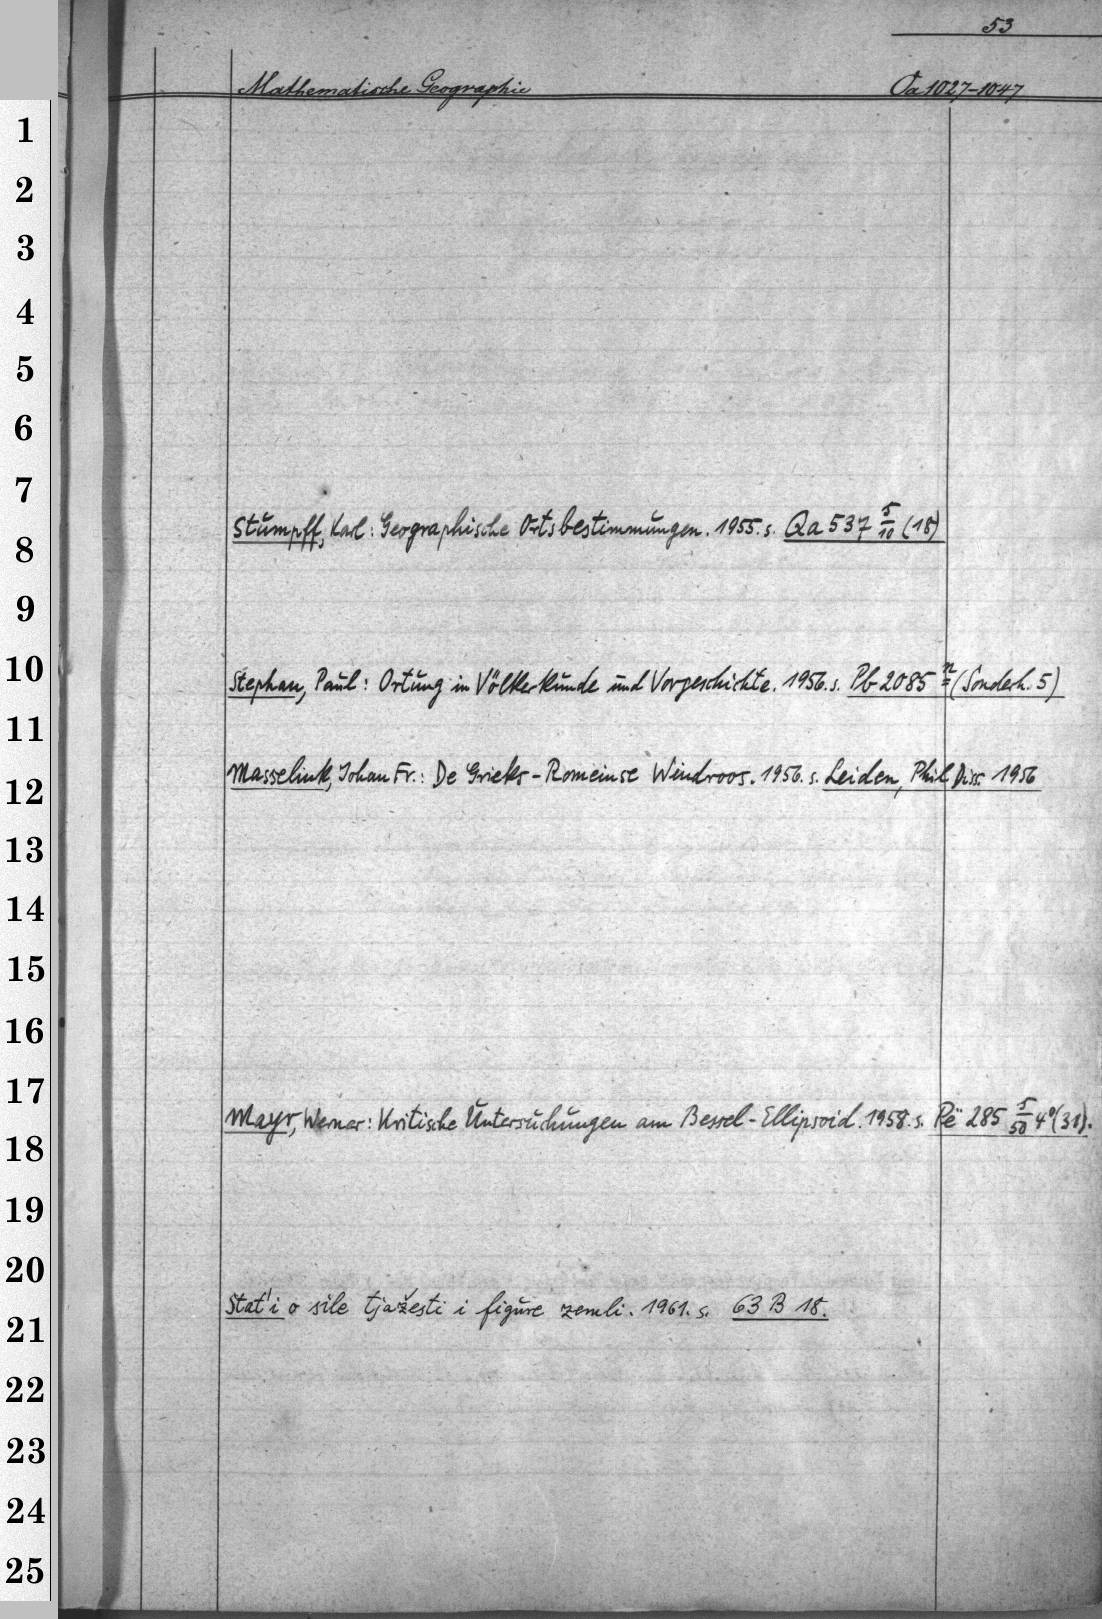 53
Mathematische Geographie Öa 1027-1047
1
2
3
4
5
6
7
Stumpff, Karl: Geographische Ortsbestimmungen. 1955. s. Qa 537 5/10 (18)
8
9
10
Stephan, Paul: Ortung in Völkerkunde und Vorgeschichte. 1956. s. Pb 2085 n (Sonderh. 5)
11
Masselink, Johan Fr.: De Grieks-Romeinse Windroos. 1956. s. Leiden, Phil Diss. 1956
12
13
14
15
16
17
Mayr, Werner: Kritische Untersuchungen am Bessel-Ellipsoid. 1958. s. Pë 285 5/50 4° (31).
18
19
20
Stat'i o sile tjažesti i figure zemli. 1961. s. 63 B 18.
21
22
23
24
25